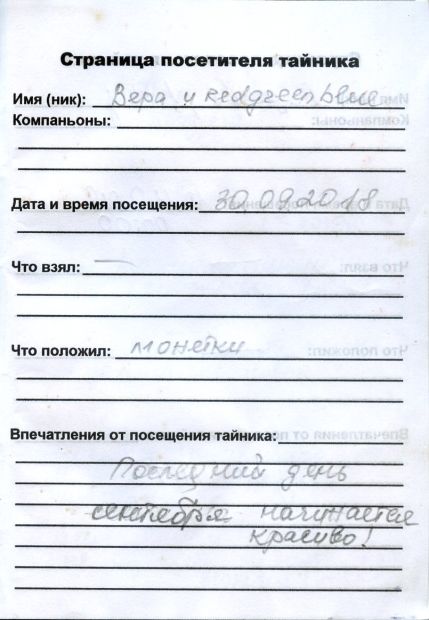 Страница посетителя тайника
Имя (ник): Вера и redgreenblue
Компаньоны:
Дата и время посещения: 30.09.2018
Что взял: —
Что положил: монетки
Впечатления от посещения тайника:
Последний день
сентября начинается
красиво!